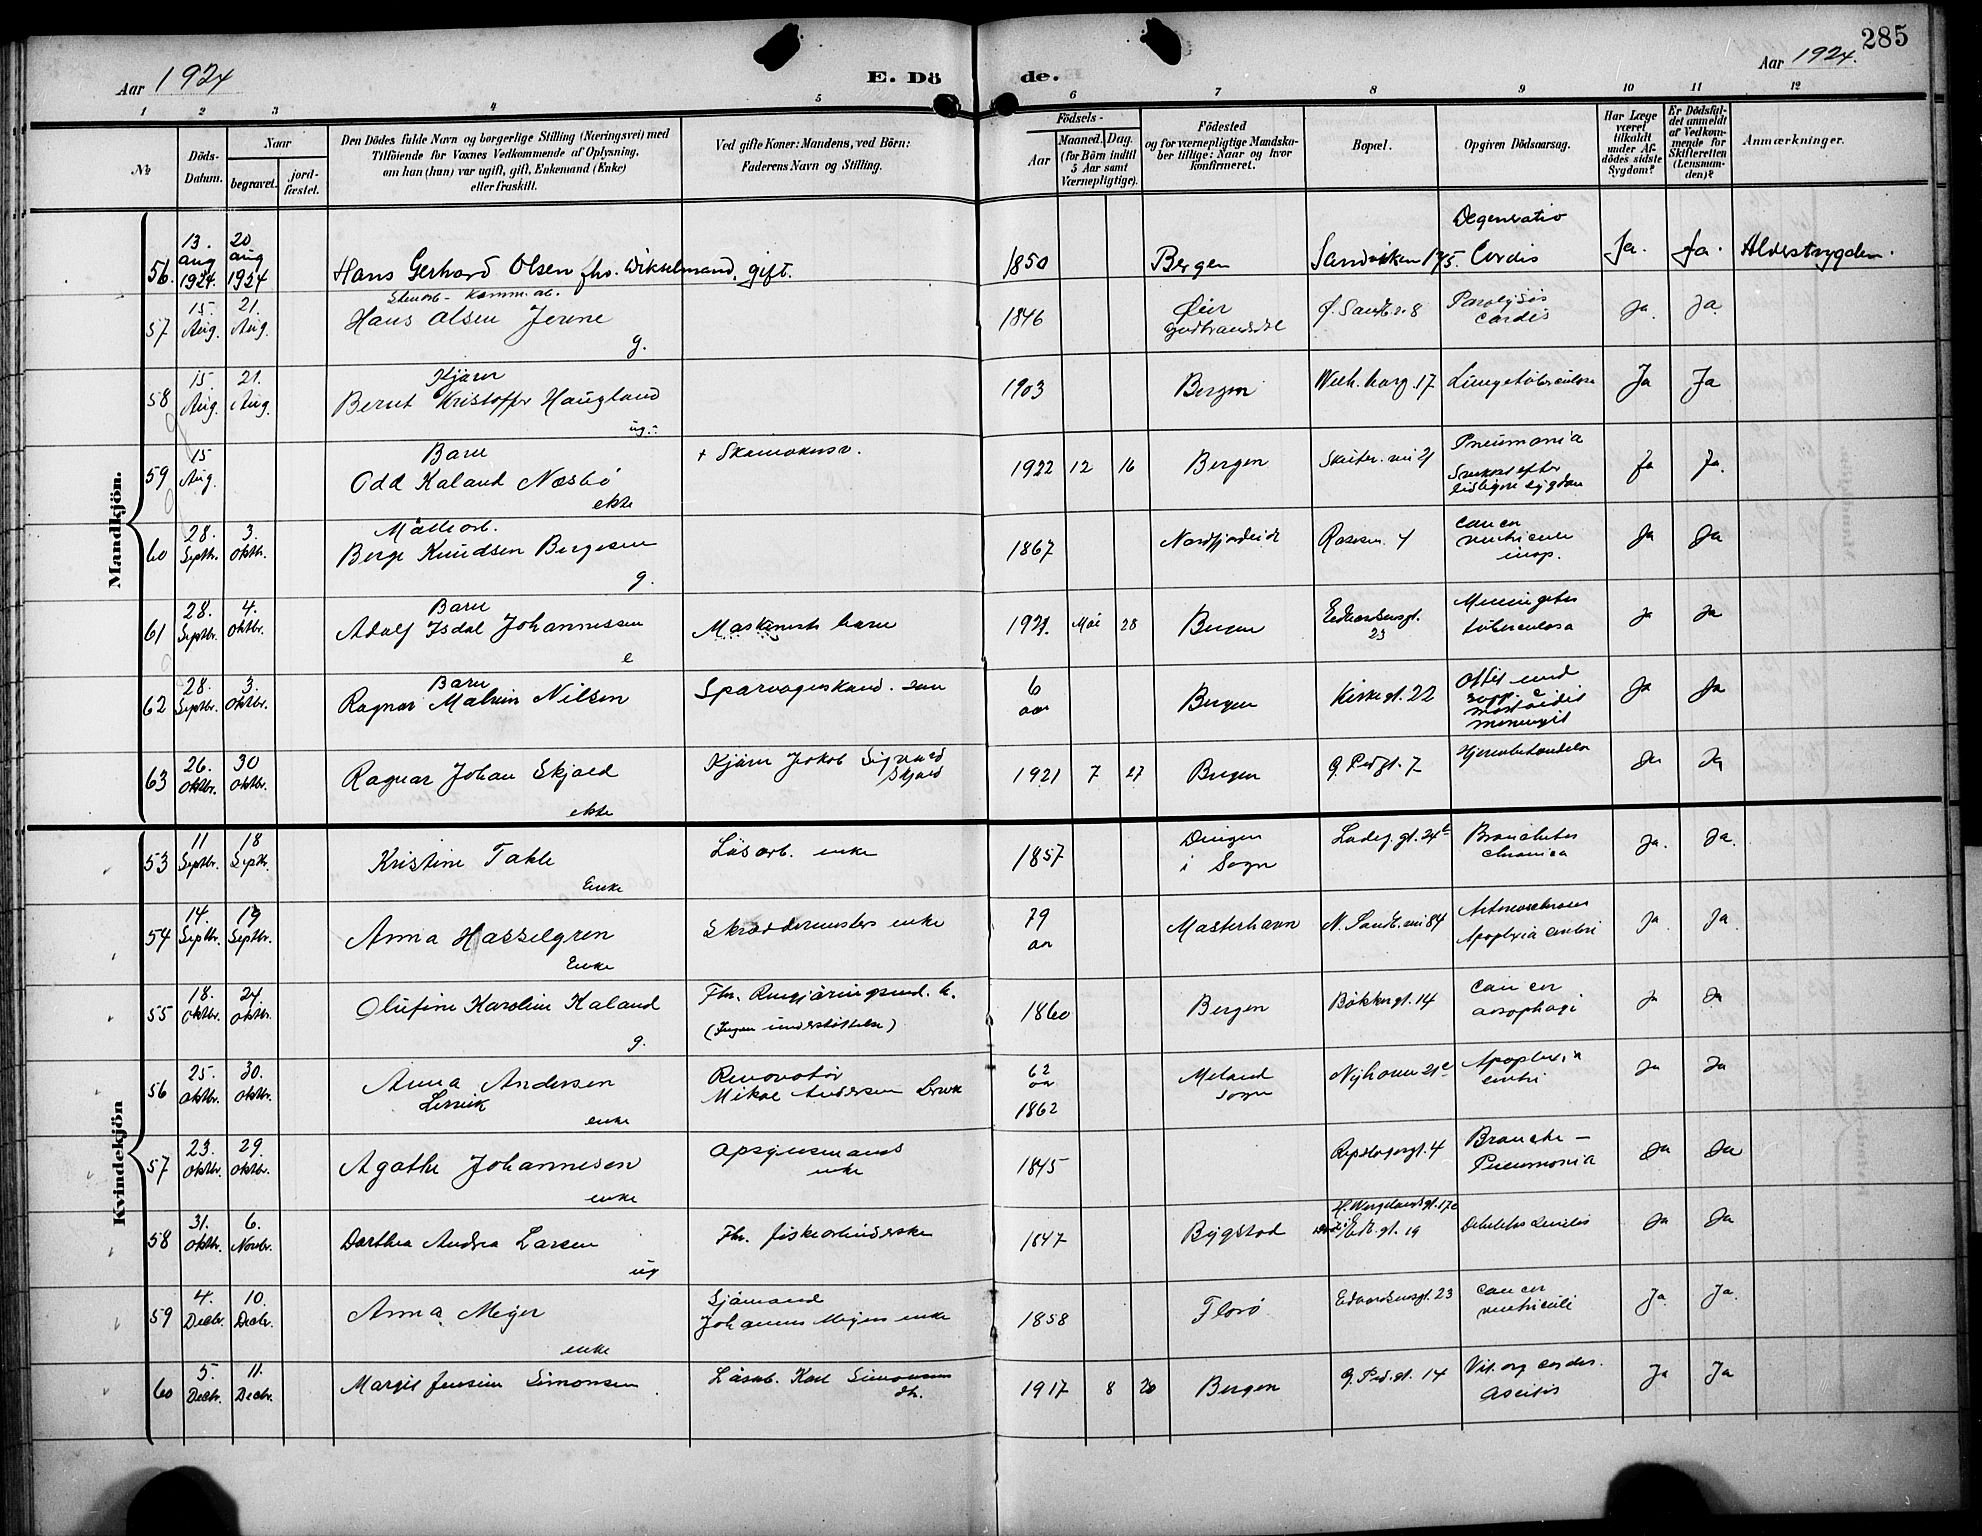 285
Aar 1924
E. Dö
de.
Aar 1924.
1 2 3 4 5 6 7 8 9 10 11 12
№
Döds-Datum.
Naar
begravet.
jord-fæstet.
Den Dödes fulde Navn og borgerlige Stilling (Næringsvei) med
Tilföiende for Voxnes Vedkommende af Oplysning,
om hun (han) var ugift, gift, Enkemand (Enke)
eller fraskilt.
Ved gifte Koner: Mandens, ved Börn:
Faderens Navn og Stilling.
Födsels-
Aar
Maaned. Dag.
(for Börn indtil
5 Aar samt
Værnepligtige).
Födested
og for værnepligtige Mandska-
ber tillige: Naar og hvor
konfirmeret.
Bopæl.
Opgiven Dödsaarsag.
Har Læge
været
tilkaldt
under Af-
dödes sidste
Sygdom?
Er Dödsfal-
det anmeldt
af Vedkom-
mende for
Skifteretten
(Lensman-
den)?
Anmærkninger.
Mandkjön.
56. 13. aug 1924. 20 aug 1924 Hans Gerhard Olsen fhv. gift. 1850 Bergen Sandviken Degeneratio Cordis Ja. Ja.
57 15. Aug. 21. Aug. Hans Olsen g. 1846 Øier Paralysis cordis Ja. Ja.
58 15. Aug. 21. Aug. Kjører Bernt Kristoffer Haugland ug. 1903 Bergen 17 Lungetuberculose Ja Ja
59 15 Aug. Barn Odd Kaland Næsbø ekte 1922 12 16 Bergen Pneumonia Ja Ja.
60 28. Septbr. 3. Oktbr. Berge Knudsen Bergesen g. 1867 Nordfjordeide Rosesm. 4 cancer ventriculi inop. Ja Ja
61 28. Septbr. 4. Oktbr. Barn Adolf Isdal Johannessen e Maskinists barn 1921. Mai 28 Bergen Edvardsensgt. 23 Meningitis tuberculosa Ja Ja
62 28. Septbr. 3. Oktbr. Barn Ragnar Nilsen Sporvognskond. søn 6 aar Bergen Kirkegt. 22 Otit med supp. mastoidit meningit Ja Ja
63 26. Oktbr. 30 Oktbr. Ragnar Johan Skjold ekte Kjører Jakob Sigvard Skjold 1921 7 27 Bergen 7 Ja Ja
Kvindekjön
53 11 Septbr. 18 Septbr. Kristine Takle Enke Løsarb. enke 1857 i Sogn Ladeg. gt. 24 Bronchitis chronica Ja. Ja.
54 14. Septbr. 19 Septbr. Anna Hasselgren Enke Skræddermesters enke 79 aar Masterhavn 84 Arteriosclerosis Apoplexia cerebri Ja Ja.
55 18. Oktbr. 24. Oktbr. Olufine Karoline Kaland g. (Ingen understøttelse) 1860 Bergen Bøkkergt. 14 cancer oesophagi Ja Ja
56 25. Oktbr. 30. Oktbr. Anna Andersen enke Renovatør Mikal Andersen 62 aar 1862 Meland sogn Nyhavn 21 Apoplexia cerebri Ja Ja
57 23. Oktbr. 29. Oktbr. Agathe Johannesen enke Opsynsmands enke 1845 Repslagergt. 4 Broncho - Pneumonia Ja Ja
58 31. Oktbr. 6. Novbr. Dorthea Andrea Larsen ug Fhv. fiskearbeiderske 1847 Bygstad H. Wergelandsgt. 17 Debilitas senilis Ja Ja
59 4. Decbr. 10. Decbr. Anna Meyer enke Sjømand Johannes Meyers enke 1858 Florø Edvardsensgt. 23 cancer ventriculi Ja Ja.
60 5. Decbr. 11. Decbr. Margit Jensine Simonsen Løsarb. Karl Simonsens dtr. 1917 8 20 Bergen 14 Vit. org cordis. Ascitis Ja Ja